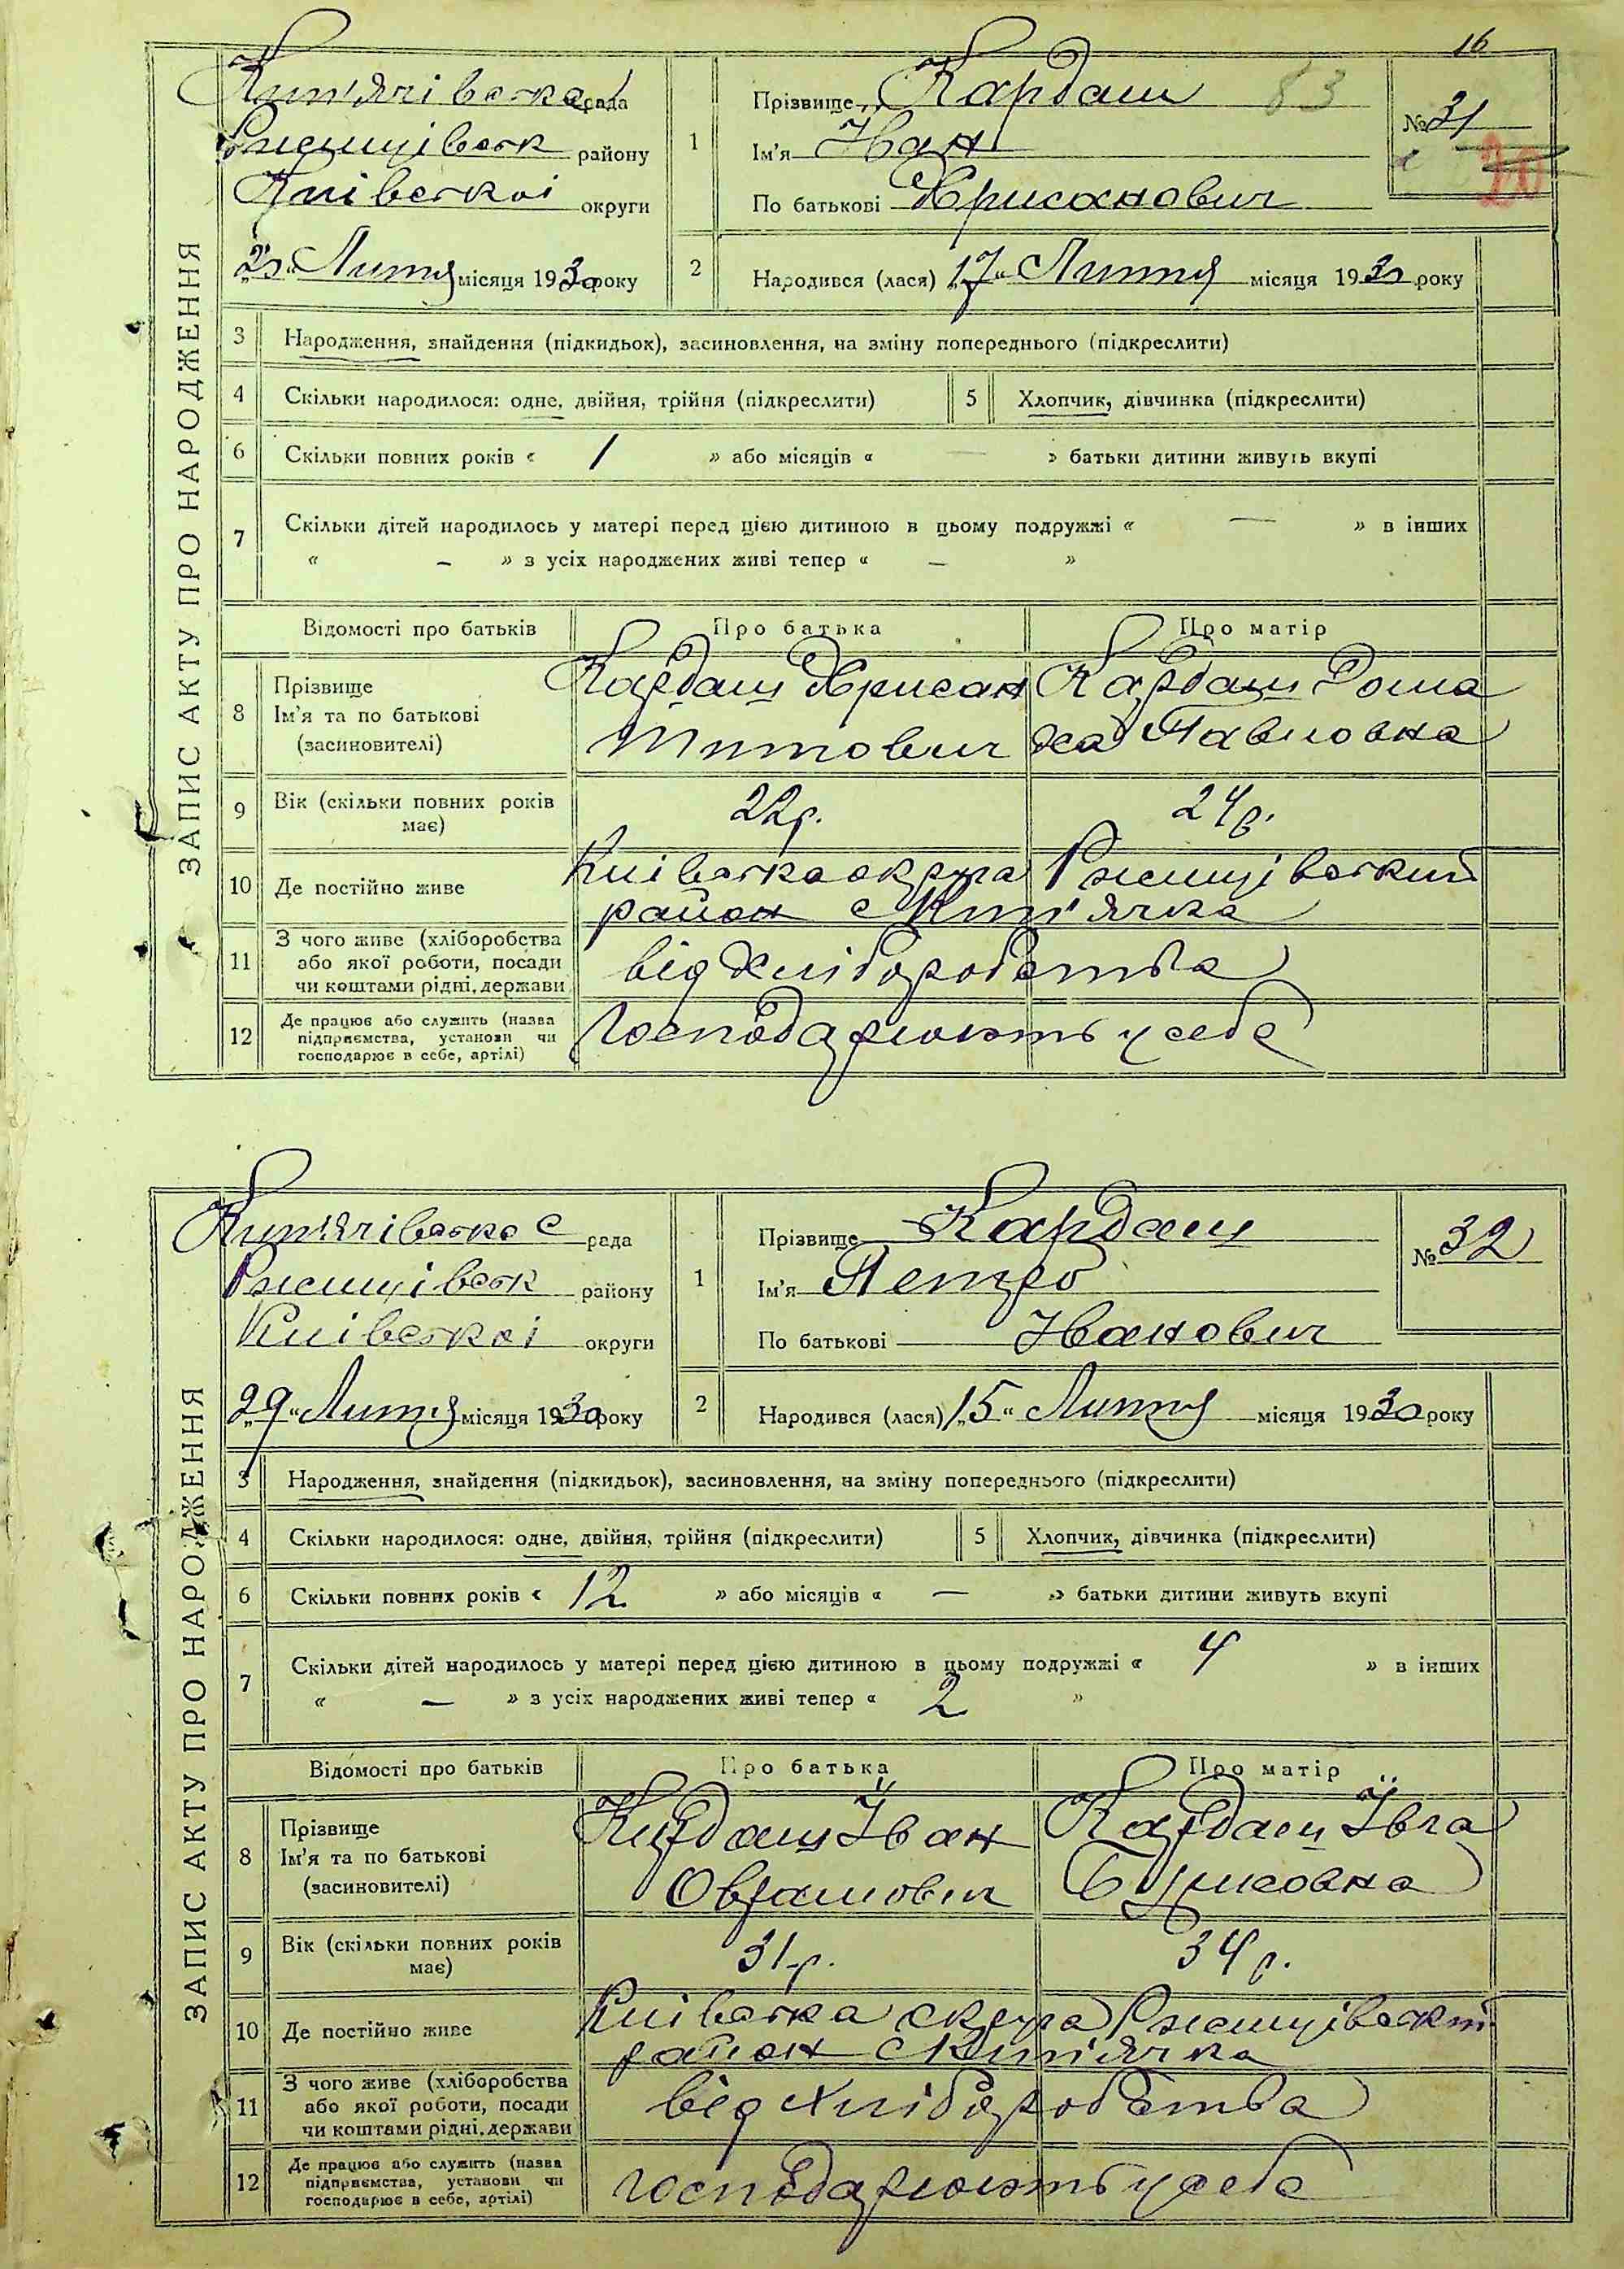 16
ЗАПИС АКТУ ПРО НАРОДЖЕННЯ
Кип'ячівська рада
Ржищівськ району
Київської округи
"23" Лютня місяця 1930 року
1 Прізвище Кардаш 83
Ім'я Іван
По батькові Хрисанович
№ 31
20
2 Народився (лася) "17" Лютня місяця 1930 року
3 Народження, знайдення (підкидьок), засиновлення, на зміну попереднього (підкреслити)
4 Скільки народилося: одне, двійня, трійня (підкреслити) 5 Хлопчик, дівчинка (підкреслити)
6 Скільки повних років « 1 » або місяців « — » батьки дитини живуть вкупі
7 Скільки дітей народилось у матері перед цією дитиною в цьому подружжі « — » в інших
« — » з усіх народжених живі тепер « — »
Відомості про батьків Про батька Про матір
8 Прізвище Ім'я та по батькові (засиновителі)
Кардаш Хрисан Кардаш Дома
Титович ха Павловна
9 Вік (скільки повних років має) 22 р. 24 р.
10 Де постійно живе Київська округа Ржищівський
район с Кип'ячка
11 З чого живе (хліборобства або якої роботи, посади чи коштами рідні, держави
від Хліборобства
12 Де працює або служить (назва підприємства, установи чи господарює в себе, артілі)
Господарюють у себе
ЗАПИС АКТУ ПРО НАРОДЖЕННЯ
Кип'ячівська С рада
Ржищівськ району
Київської округи
"29" Лютня місяця 1930 року
1 Прізвище Кардаш
Ім'я Петро
По батькові Іванович
№ 32
2 Народився (лася) "15" Лютня місяця 1930 року
3 Народження, знайдення (підкидьок), засиновлення, на зміну попереднього (підкреслити)
4 Скільки народилося: одне, двійня, трійня (підкреслити) 5 Хлопчик, дівчинка (підкреслити)
6 Скільки повних років « 12 » або місяців « — » батьки дитини живуть вкупі
7 Скільки дітей народилось у матері перед цією дитиною в цьому подружжі « 4 » в інших
« — » з усіх народжених живі тепер « 2 »
Відомості про батьків Про батька Про матір
8 Прізвище Ім'я та по батькові (засиновителі)
Кардаш Іван Кардаш Ївга
Оврамович Борисовна
9 Вік (скільки повних років має) 31 р. 34 р.
10 Де постійно живе Київська округа Ржищівський
район с Кип'ячка
11 З чого живе (хліборобства або якої роботи, посади чи коштами рідні, держави
від Хліборобства
12 Де працює або служить (назва підприємства, установи чи господарює в себе, артілі)
господарюють у себе